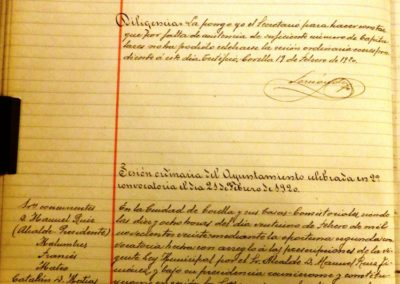 Diligencia: La pongo yo el Secretario para hacer constar
que por falta de asistencia de suficiente número de Capitu-
lares no ha podido celebrarse la sesión ordinaria corres-
pondiente a este día. Certifico, Corella 19 de Febrero de 1920.
Sesión ordinaria del Ayuntamiento celebrada en 2ª
convocatoria el día 21 de Febrero de 1920.
Sres. concurrentes
D. Manuel Ruiz
(Alcalde Presidente)
Malumbres
Francés
Mateo
En la Ciudad de Corella y sus Casas-Consistoriales, siendo
las diez y ocho horas del día veintiuno de Febrero de mil
novecientos veinte mediante la oportuna segunda con-
vocatoria hecha con arreglo á las prescripciones de la vi-
gente Ley Municipal por el Sr. Alcalde D. Manuel Ruiz
y bajo su presidencia